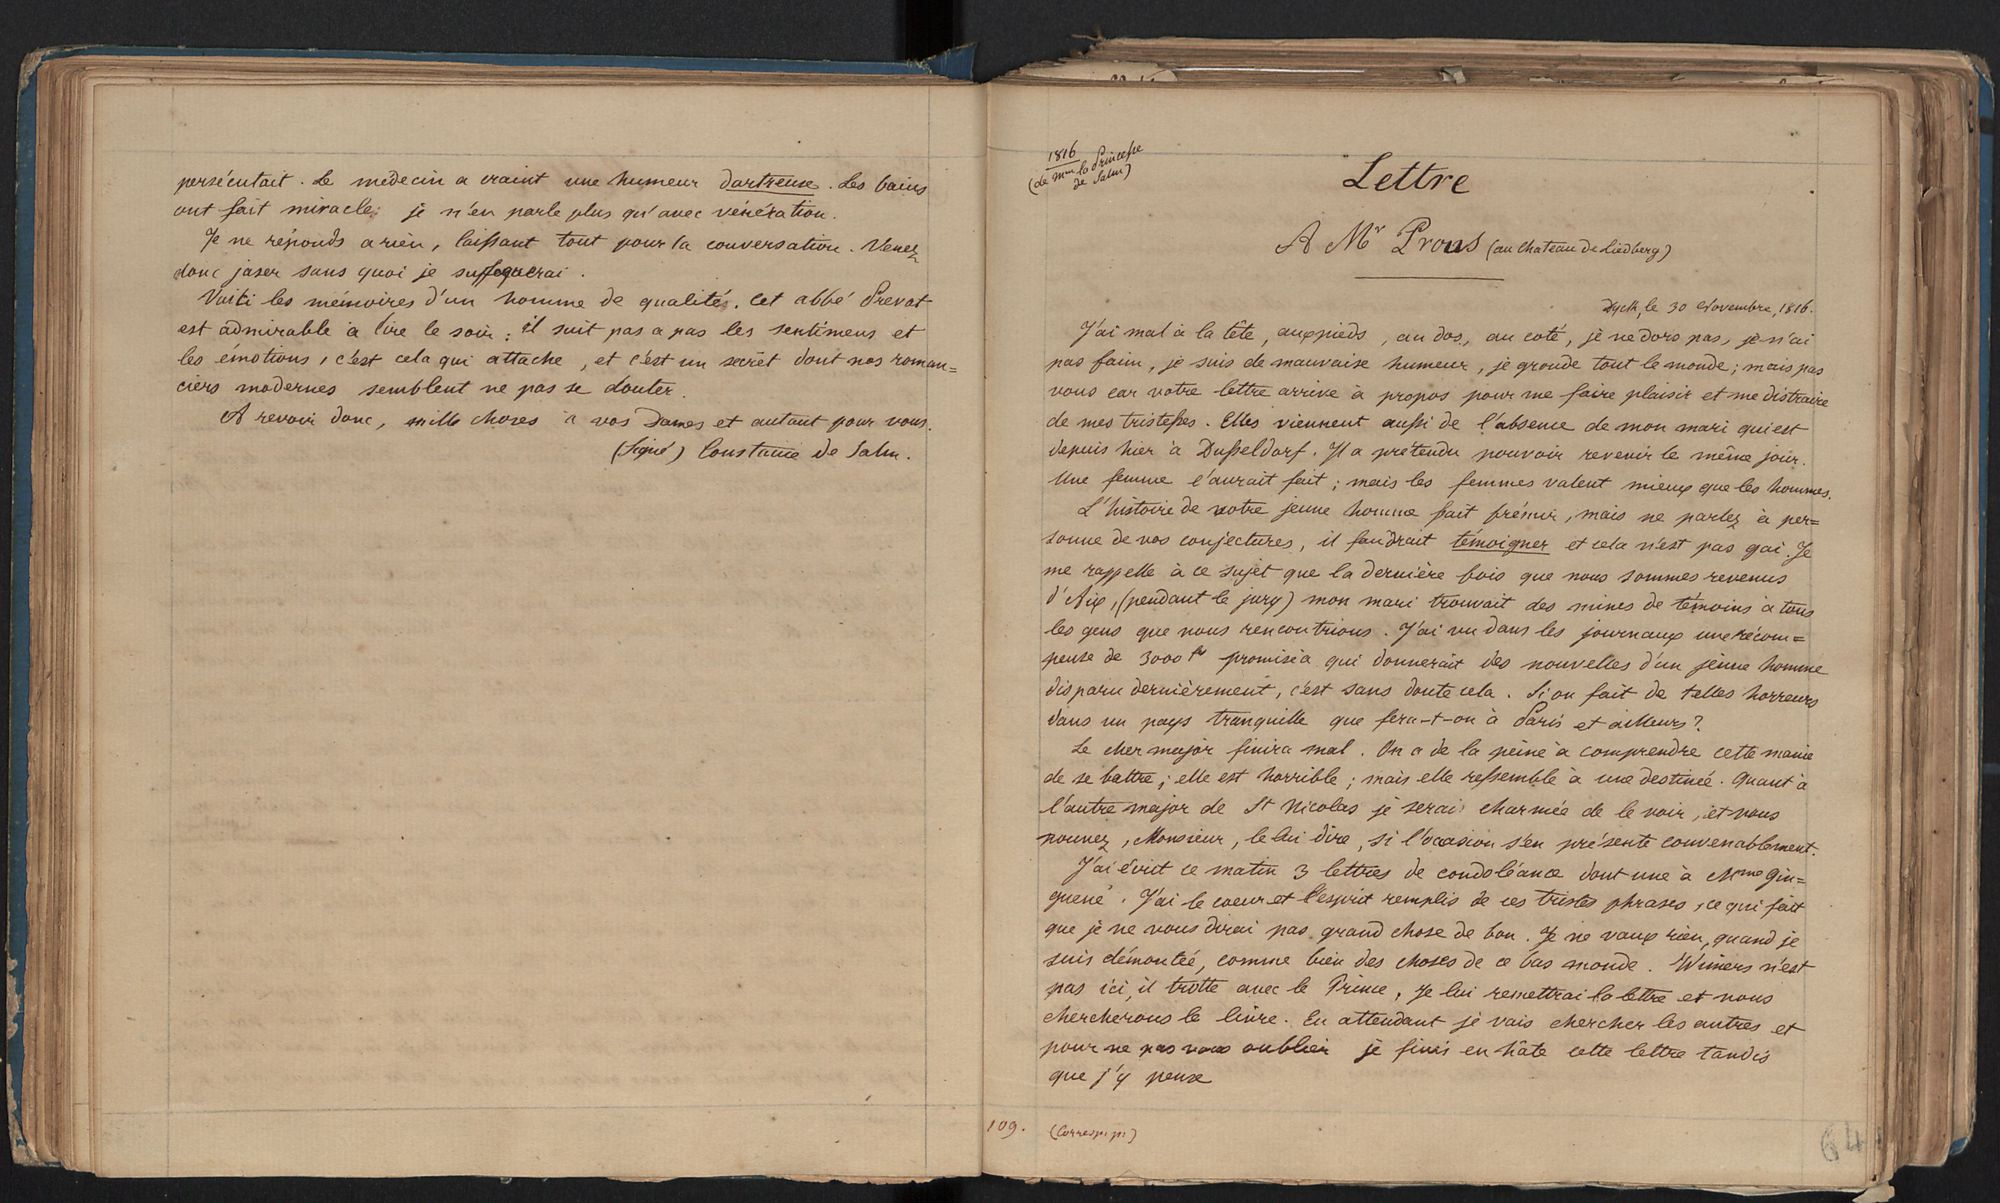 persécutait. Le medecin a craint une humeur dartreuse. Les bains
ont fait miracle; je n'en parle plus qu'avec vénération.
Je ne réponds a rien, laissant tout pour la conversation. Venez
donc jaser sans quoi je suffoquerai.
Voici les mémoires d'un homme de qualité. Cet abbé Prevot
est admirable à lire le soir; il suit pas a pas les sentimens et
les émotions, c'est cela qui attache, et c'est un secret dont nos roman=
ciers modernes semblent ne pas se douter.
A revoir donc, mille choses à vos Dames et autant pour vous.
(Signé) Constance de Salm.
1816
(de Mme la Princesse
de Salm)
Lettre
A Mr Prous (au chateau de Liedberg)
Dyck, le 30 Novembre, 1816.
J'ai mal à la tête, aux pieds, au dos, au coté, je ne dors pas, je n'ai
pas faim, je suis de mauvaise humeur, je gronde tout le monde; mais pas
vous car votre lettre arrive à propos pour me faire plaisir et me distraire
de mes tristesses. Elles viennent aussi de l'absence de mon mari qui est
depuis hier à Dusseldorf. Il a prétendu pouvoir revenir le même jour.
Une femme l'aurait fait; mais les femmes valent mieux que les hommes.
L'histoire de votre jeune homme fait frémir, mais ne parlez à per=
sonne de vos conjectures, il faudrait témoigner et cela n'est pas gai. Je
me rappelle à ce sujet que la dernière fois que nous sommes revenus
d'Aix, (pendant le jury) mon mari trouvait des mines de témoins à tous
les gens que nous rencontrions. J'ai vu dans les journaux une récom=
pense de 3000 frs promise à qui donnerait des nouvelles d'un jeune homme
disparu dernièrement, c'est sans doute cela. Si on fait de telles horreurs
dans un pays tranquille que fera-t-on à Paris et ailleurs?
Le cher major finira mal. On a de la peine à comprendre cette manie
de se battre; elle est horrible; mais elle ressemble à une destinée. Quant à
l'autre major de St Nicolas je serai charmée de le voir, et vous
pouvez, Monsieur, le lui dire, si l'occasion s'en présente convenablement.
J'ai écrit ce matin 3 lettres de condoléance dont une à Mme Gin=
guené. J'ai le coeur et l'esprit remplis de ces tristes phrases, ce qui fait
que je ne vous dirai pas grand chose de bon. Je ne vaux rien, quand je
suis démontée, comme bien des choses de ce bas monde. Wimers n'est
pas ici, il trotte avec le Prince, je lui remettrai la lettre et nous
chercherons le livre. En attendant je vais chercher les autres et
pour ne pas vous oublier je finis en hâte cette lettre tandis
que j'y pense
109. (Corresp. pi)
64